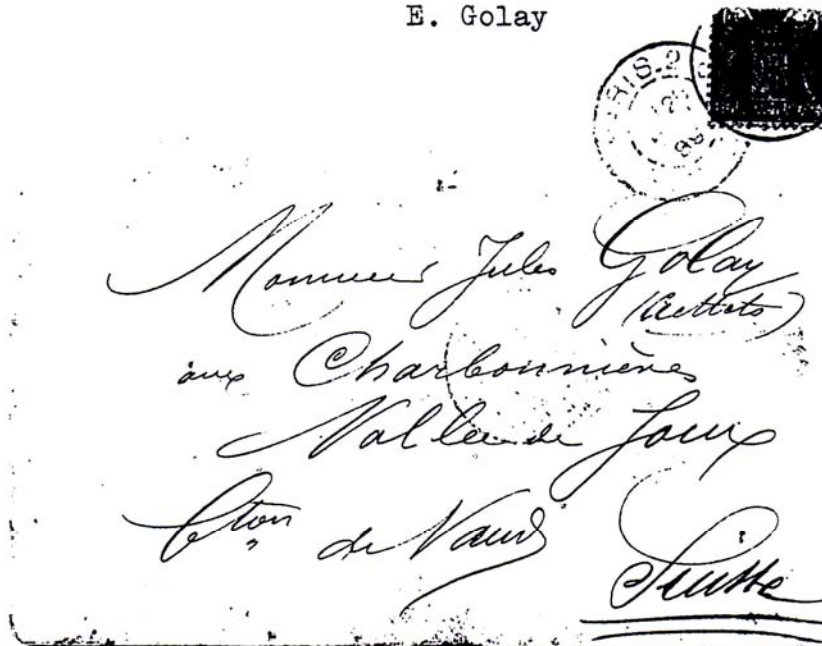 E. Golay
RIS. 2
Monsieur Jules Golay
aux Charbonnières
Vallée de Joux
Cton de Vaud
Suisse